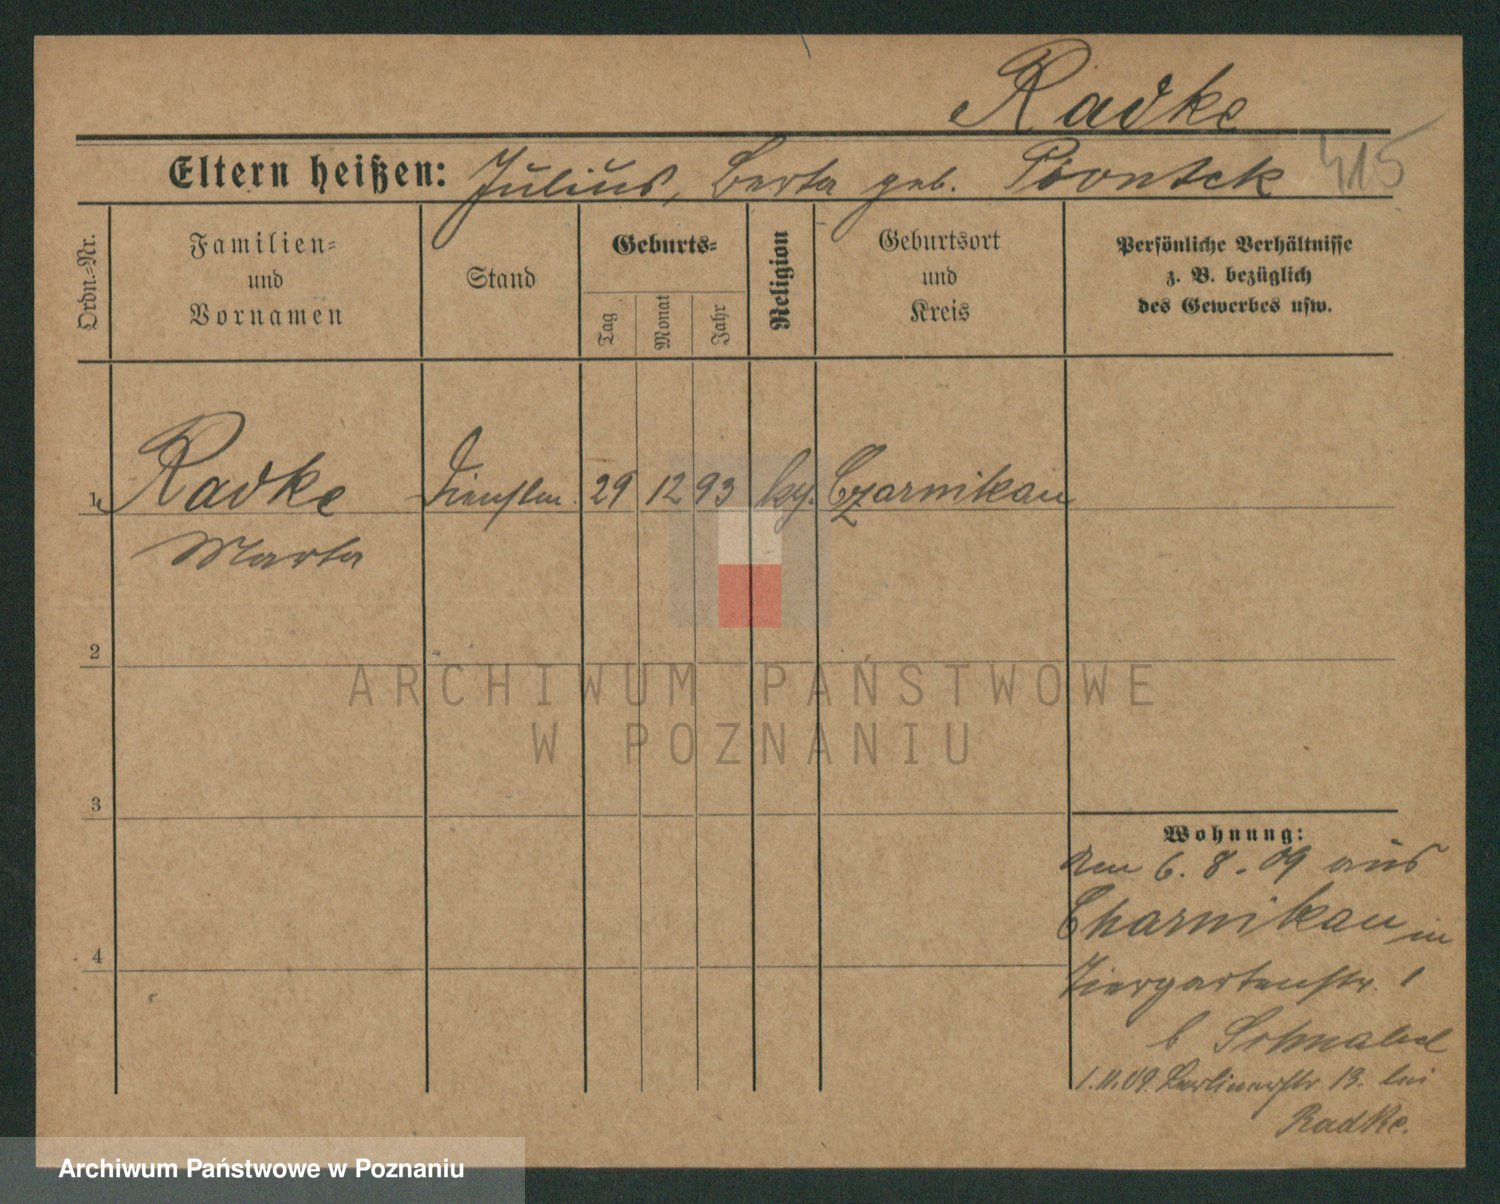 Radke
Eltern heißen: Julius, Berta geb. 415
Ordn.-Nr.
Familien-
und
Vornamen
Stand
Geburts-
Tag
Monat
Jahr
Religion
Geburtsort
und
Kreis
Persönliche Verhältnisse
z. B. bezüglich
des Gewerbes usw.
1 Radke Dienstm. 29 12 93 Czarnikau
Marta
2
ARCHIWUM PAŃSTWOWE
W POZNANIU
3
4
Wohnung:
6. 8. 09 aus
Czarnikau in
Tiergartenstr. 1
b Schnabel
1.11.09. Berlinerstr. 13. bei
Radke.
Archiwum Państwowe w Poznaniu